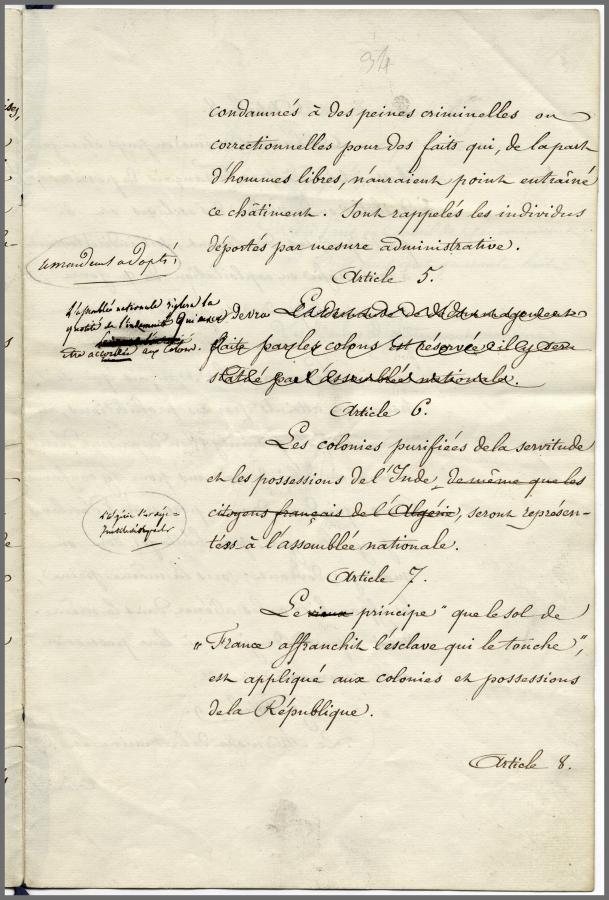 94
condamnés à des peines criminelles ou
correctionnelles pour des faits qui, de la part
d'hommes libres, n'auraient point entraîné
ce châtiment. Sont rappelés les individus
déportés par mesure administrative.
amendement adopté
Article 5.
L'assemblée nationale règlera la
quotité de l'indemnité qui devra
être accordée aux colons.
La demande de dédommagement
faite par les colons est réservée il y sera
statué par l'assemblée nationale.
Article 6.
Les colonies purifiées de la servitude
et les possessions de l'Inde, de même que les
citoyens français de l'Algérie, seront représen-
tées à l'assemblée nationale.
L'Algérie
Article 7.
Le vieux principe "que le sol de
"France affranchit l'esclave qui le touche",
est appliqué aux colonies et possessions
de la République.
Article 8.